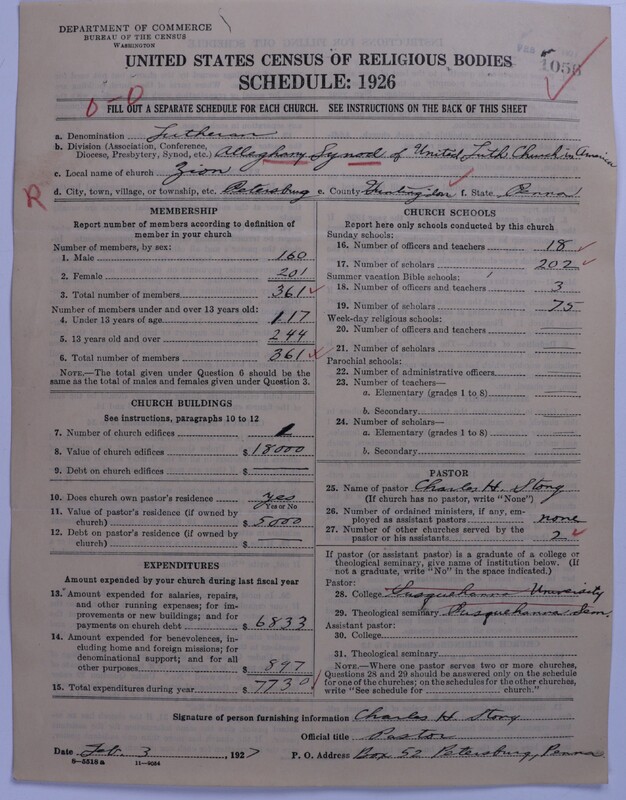 DEPARTMENT OF COMMERCE
BUREAU OF THE CENSUS
WASHINGTON
1056
UNITED STATES CENSUS OF RELIGIOUS BODIES
SCHEDULE: 1926
FILL OUT A SEPARATE SCHEDULE FOR EACH CHURCH. SEE INSTRUCTIONS ON THE BACK OF THIS SHEET
a. Denomination Lutheran
b. Division (Association, Conference, Diocese, Presbytery, Synod, etc.) Alleghany Synod of United Luth. Church in America
c. Local name of church Zion
R
d. City, town, village, or township, etc. Petersburg e. County Huntingdon f. State Penna
MEMBERSHIP
Report number of members according to definition of
member in your church
Number of members, by sex:
1. Male 160
2. Female 201
3. Total number of members 361
Number of members under and over 13 years old:
4. Under 13 years of age 117
5. 13 years old and over 244
6. Total number of members 361
NOTE.—The total given under Question 6 should be the
same as the total of males and females given under Question 3.
CHURCH BUILDINGS
See instructions, paragraphs 10 to 12
7. Number of church edifices 1
8. Value of church edifices $ 18000
9. Debt on church edifices $
10. Does church own pastor's residence yes
Yes or No
11. Value of pastor's residence (if owned by
church) $ 5000
12. Debt on pastor's residence (if owned by
church) $
EXPENDITURES
Amount expended by your church during last fiscal year
13. Amount expended for salaries, repairs,
and other running expenses; for im-
provements or new buildings; and for
payments on church debt $ 6833
14. Amount expended for benevolences, in-
cluding home and foreign missions; for
denominational support; and for all
other purposes $ 897
15. Total expenditures during year $ 7730
CHURCH SCHOOLS
Report here only schools conducted by this church
Sunday schools:
16. Number of officers and teachers 18
17. Number of scholars 202
Summer vacation Bible schools:
18. Number of officers and teachers 3
19. Number of scholars 75
Week-day religious schools:
20. Number of officers and teachers
21. Number of scholars
Parochial schools:
22. Number of administrative officers
23. Number of teachers—
a. Elementary (grades 1 to 8)
b. Secondary
24. Number of scholars—
a. Elementary (grades 1 to 8)
b. Secondary
PASTOR
25. Name of pastor Charles H. Stong
(If church has no pastor, write "None")
26. Number of ordained ministers, if any, em-
ployed as assistant pastors none
27. Number of other churches served by the
pastor or his assistants 2
If pastor (or assistant pastor) is a graduate of a college or
theological seminary, give name of institution below. (If
not a graduate, write "No" in the space indicated.)
Pastor:
28. College Susquehanna University
29. Theological seminary Susquehanna Sem.
Assistant pastor:
30. College
31. Theological seminary
NOTE.—Where one pastor serves two or more churches,
Questions 28 and 29 should be answered only on the schedule
for one of the churches; on the schedules for the other churches,
write "See schedule for church."
Signature of person furnishing information Charles H Stong
Official title Pastor
Date Feb. 3 1927 P. O. Address Box 52 Petersburg, Penna
8—5518 a 11—9054